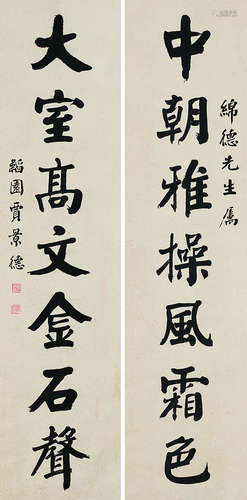 綿德先生屬
中朝雅操風霜色
大室高文金石聲
韜園賈景德